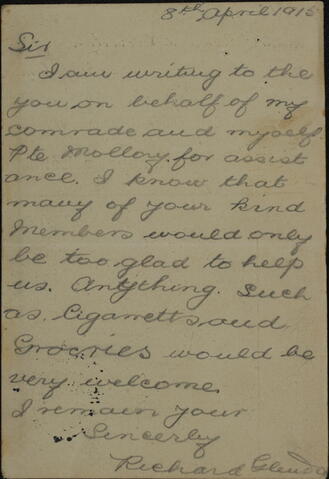 8th April 1915
Sir
I am writing to the
you on behalf of my
comrade and myself
Pte Mollozy for assist
ance. I know that
many of your kind
Members would only
be too glad to help
us. Anything. Such
as. Cigarretts and
Grocries would be
very welcome
I remain your
Sincerly
Richard